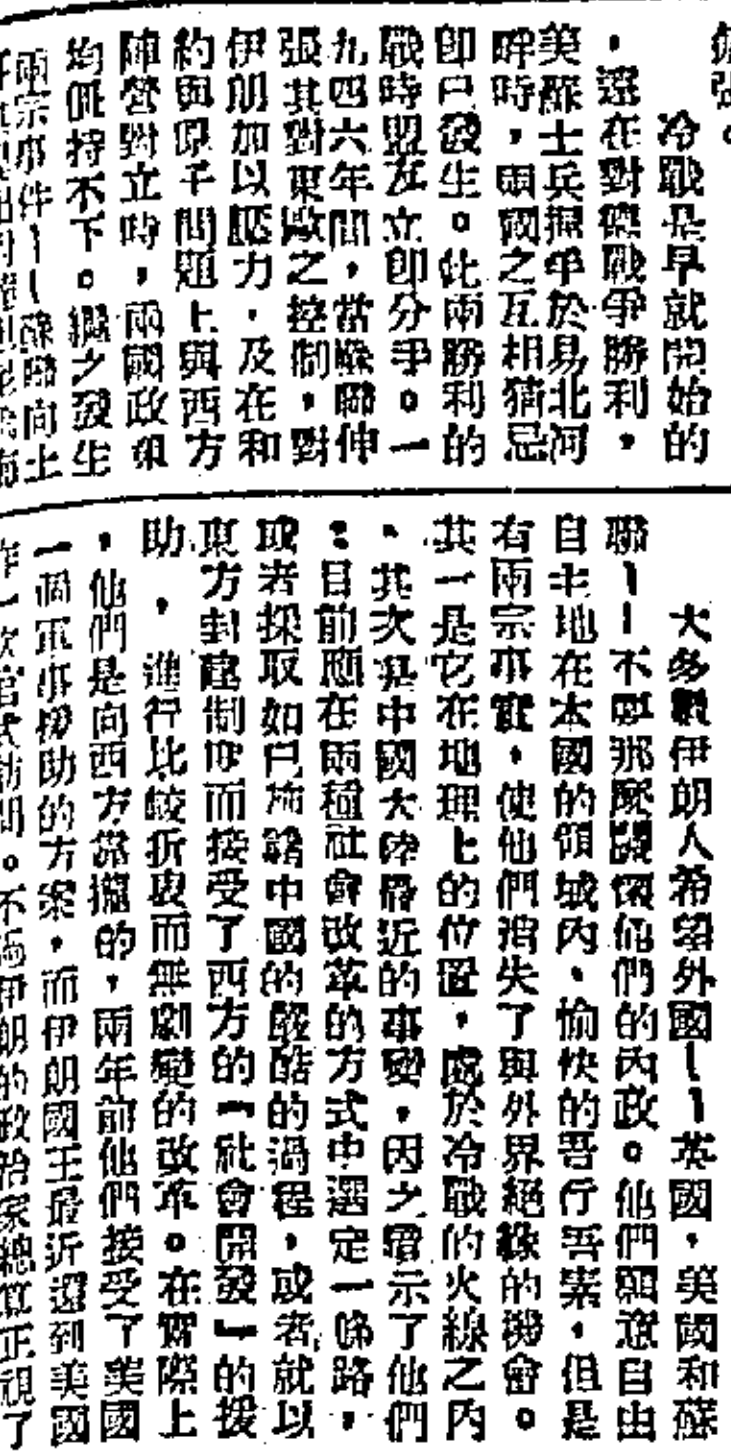 張。
冷戰是早就開始的
,還在對德戰爭勝利,
美蘇士兵握爭於易北河
畔時,兩國之互相猜忌
卽已發生。此兩勝利的
戰時盟友立卽分爭。一
九四六年間,當蘇聯伸
張其對東歐之控制,對
伊朗加以壓力,及在和
約與原子問題上與西方
陣營對立時,兩國政策
均僵持不下。繼之發生
兩宗事件——蘇聯向土
大多數伊朗人希望外國——英國,美國和蘇
聯——不要那麽關懷他們的內政。他們願意自由
自主地在本國的領域內、愉快的吾行吾素,但是
有兩宗事實,使他們消失了與外界絕緣的機會。
其一是它在地理上的位置,處於冷戰的火線之內
、其次是中國大陸最近的事變,因之啓示了他們
:目前應在兩種社會改革的方式中選定一條路,
或者採取如已施諸中國的嚴酷的過程,或者就以
東方封建制度而接受了西方的「社會開發」的援
助,進行比較折衷而無劇變的改革。在實際上
,他們是向西方靠攏的,兩年前他們接受了美國
一個軍事援助的方案,而伊朗國王最近還到美國
作一次官式訪問。不過伊朗的政治家總算正視了